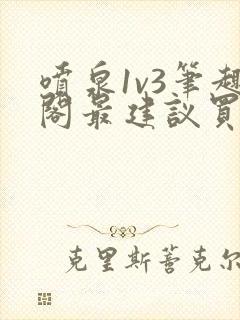 噴泉1v3筆趣
閣最建議買
克里斯蒂克尔